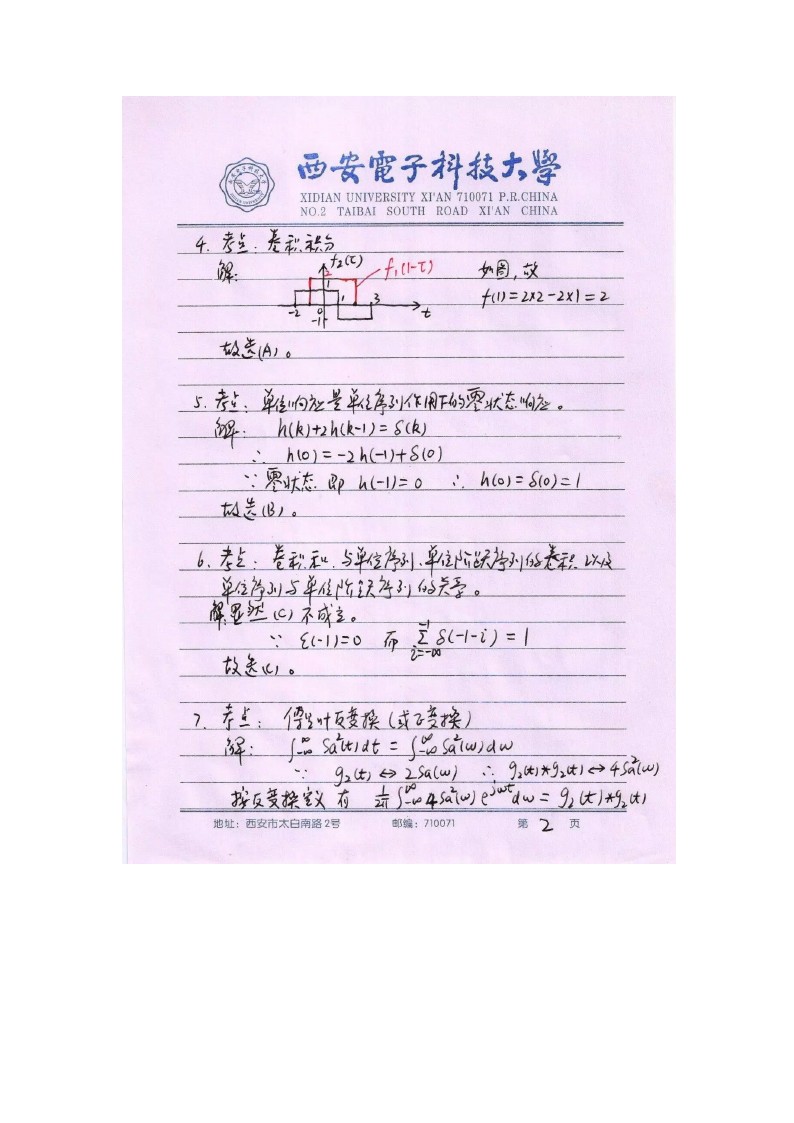 西安電子科技大學
XIDIAN UNIVERSITY XI'AN 710071 P.R.CHINA
NO.2 TAIBAI SOUTH ROAD XI'AN CHINA
4. 考点: 卷积积分
解: f₂(τ) f₁(1-τ) 如图, 故
2 1 -2 0 1 3 t -1 f(1)=2×2-2×1=2
故选(A)。
5. 考点: 单位响应是单位序列作用下的零状态响应。
解: h(k)+2h(k-1)=δ(k)
∴ h(0)=-2h(-1)+δ(0)
∵ 零状态 即 h(-1)=0 ∴ h(0)=δ(0)=1
故选(B)。
6. 考点: 卷积和, 与单位序列、单位阶跃序列的卷积 以及
单位序列与单位阶跃序列的关系。
解: 显然 (C) 不成立。
∵ ε(-1)=0 而 \sum_{i=-∞}^{-1} δ(-1-i) = 1
故选(C)。
7. 考点: 傅里叶反变换 (或正变换)
解: ∫_{-∞}^{∞} Sa²(t)dt = ∫_{-∞}^{∞} Sa²(ω)dω
∵ g₂(t) ↔ 2Sa(ω) ∴ g₂(t)*g₂(t) ↔ 4Sa²(ω)
按反变换定义 有 \frac{1}{2π} ∫_{-∞}^{∞} 4Sa²(ω) e^{jωt} dω = g₂(t)*g₂(t)
地址: 西安市太白南路2号 邮编: 710071 第 2 页